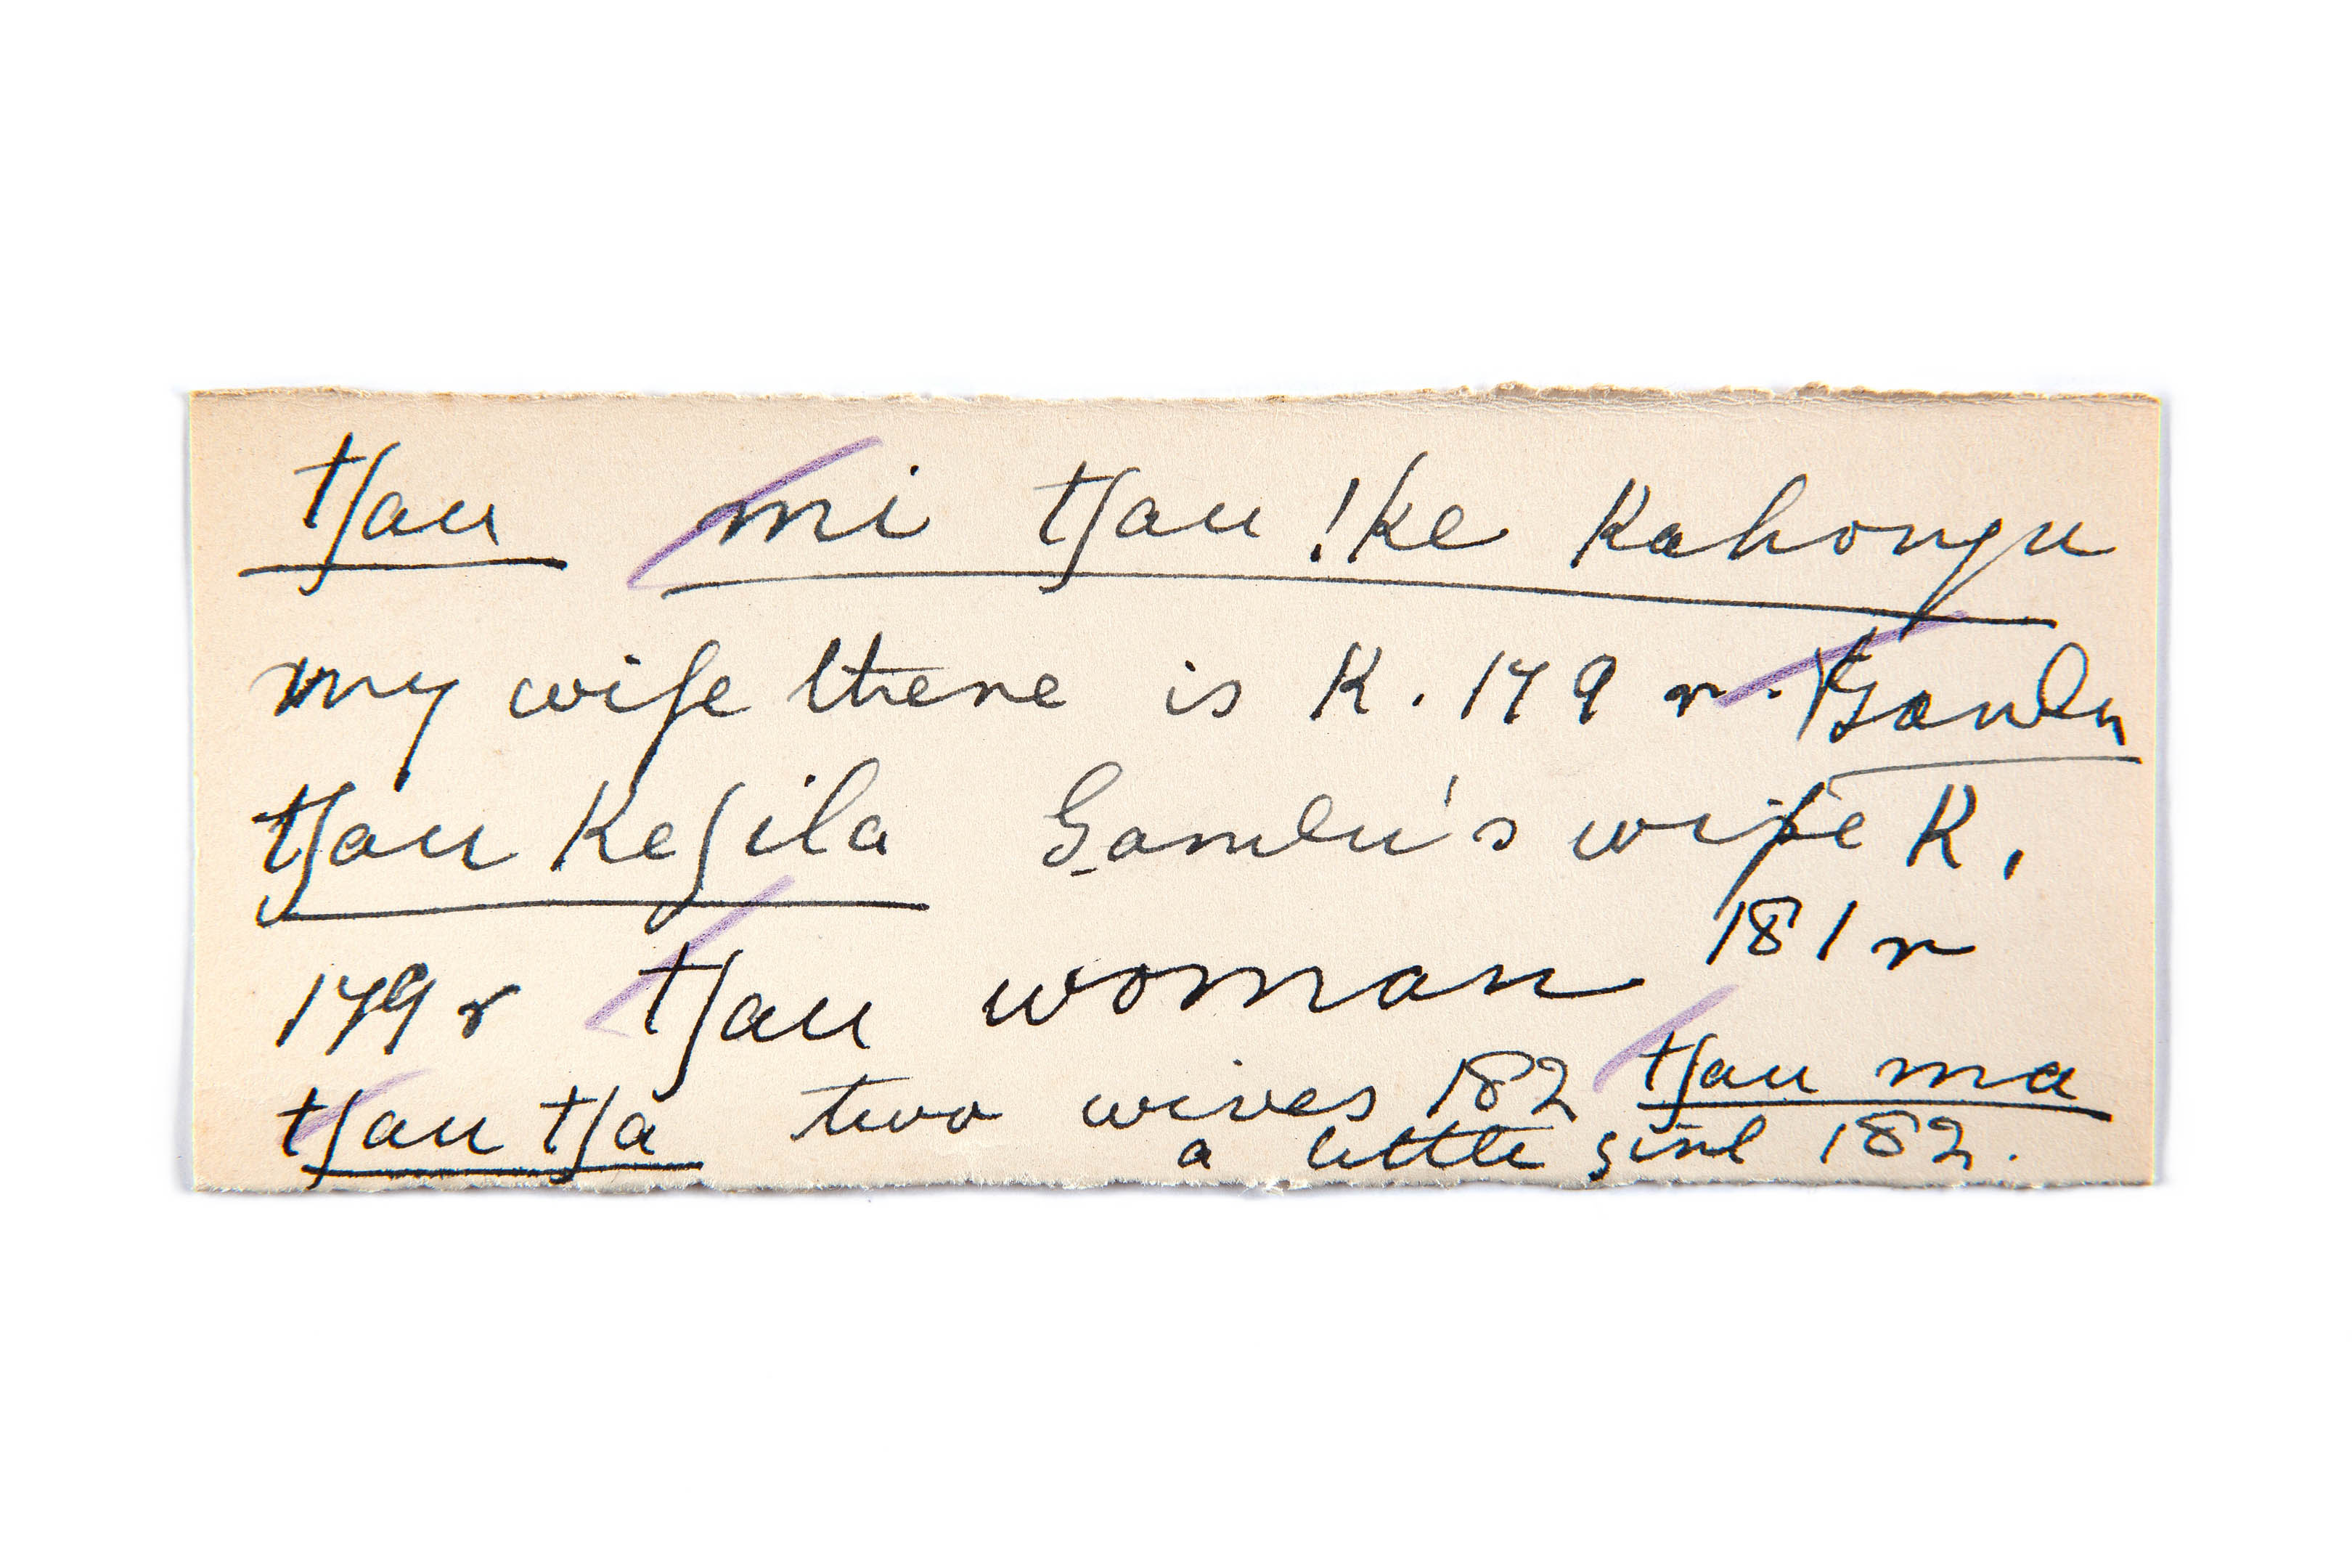 tʃau mi tʃau !ke Kahongu
my wife there is K. 179 r. Gambu
tʃau Keʃila Gambu's wife K.
181 r
179 r tʃau woman
tʃau tʃa two wives 182 tʃau ma
a little girl 182.